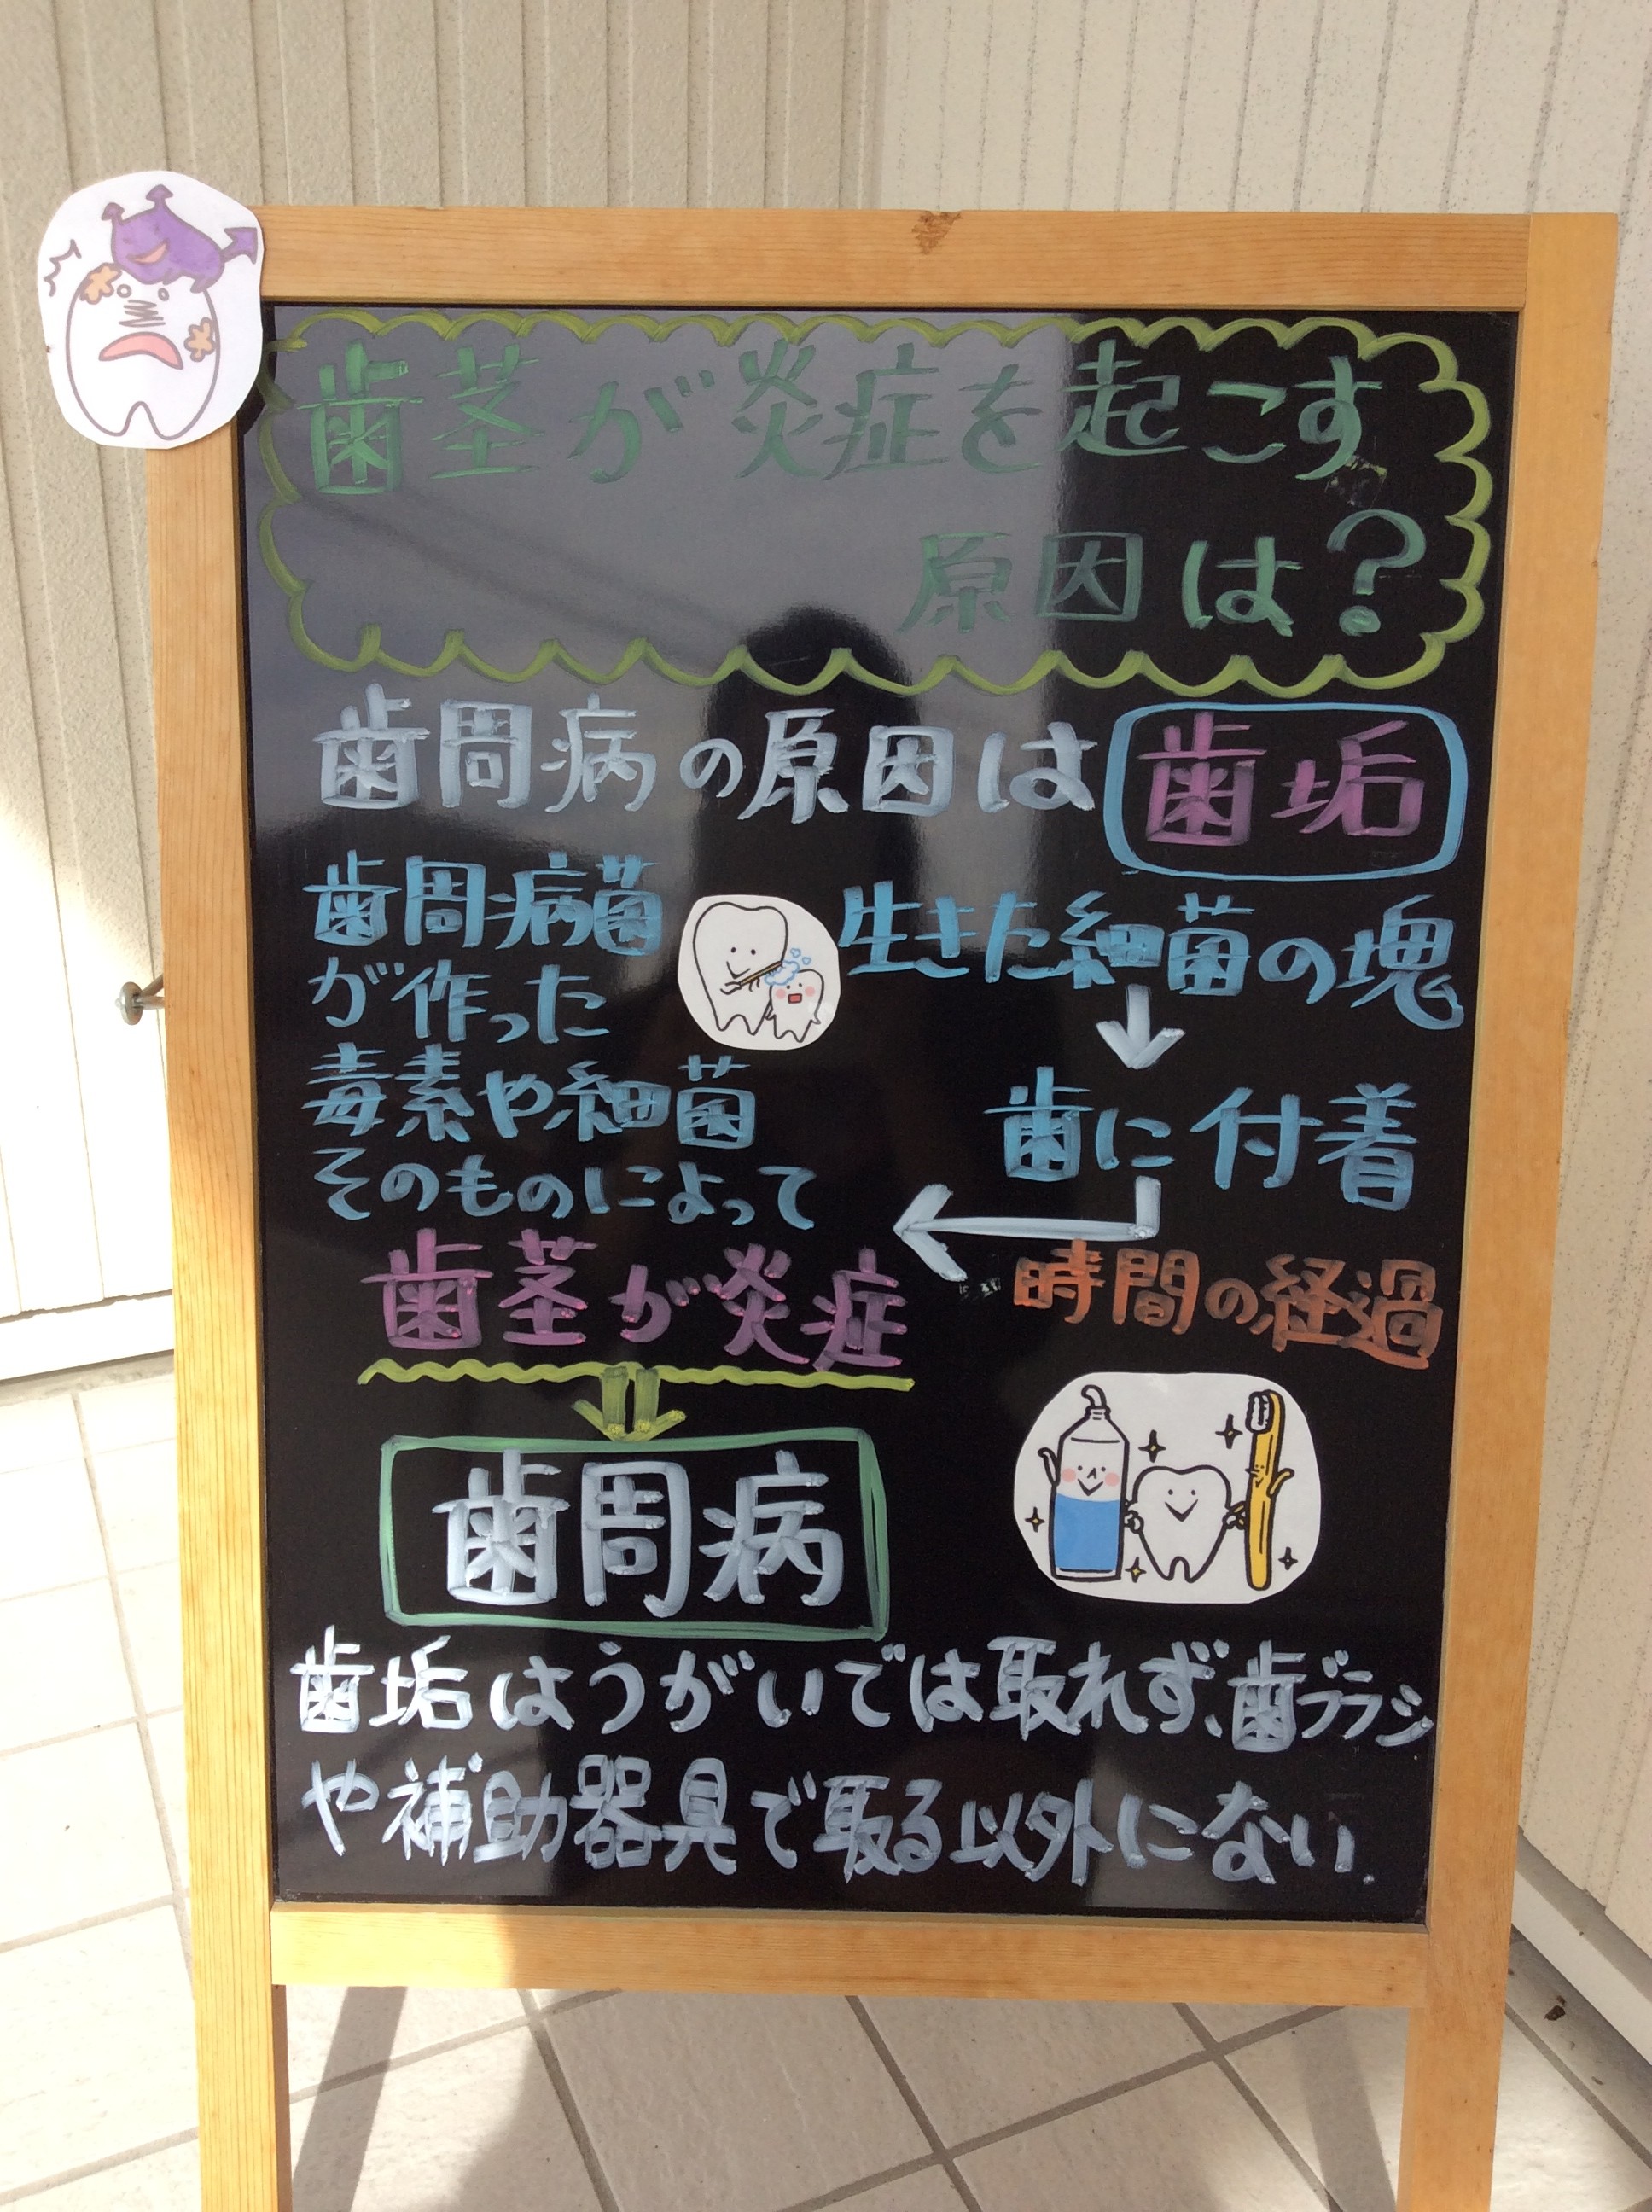 歯茎が炎症を起こす
原因は?
歯周病の原因は歯垢
生きた細菌の塊
歯に付着
時間の経過
歯周病菌
が作った
毒素や細菌
そのものによって
歯茎が炎症
歯周病
歯垢はうがいでは取れず、歯ブラシ
や補助器具で取る以外にない.